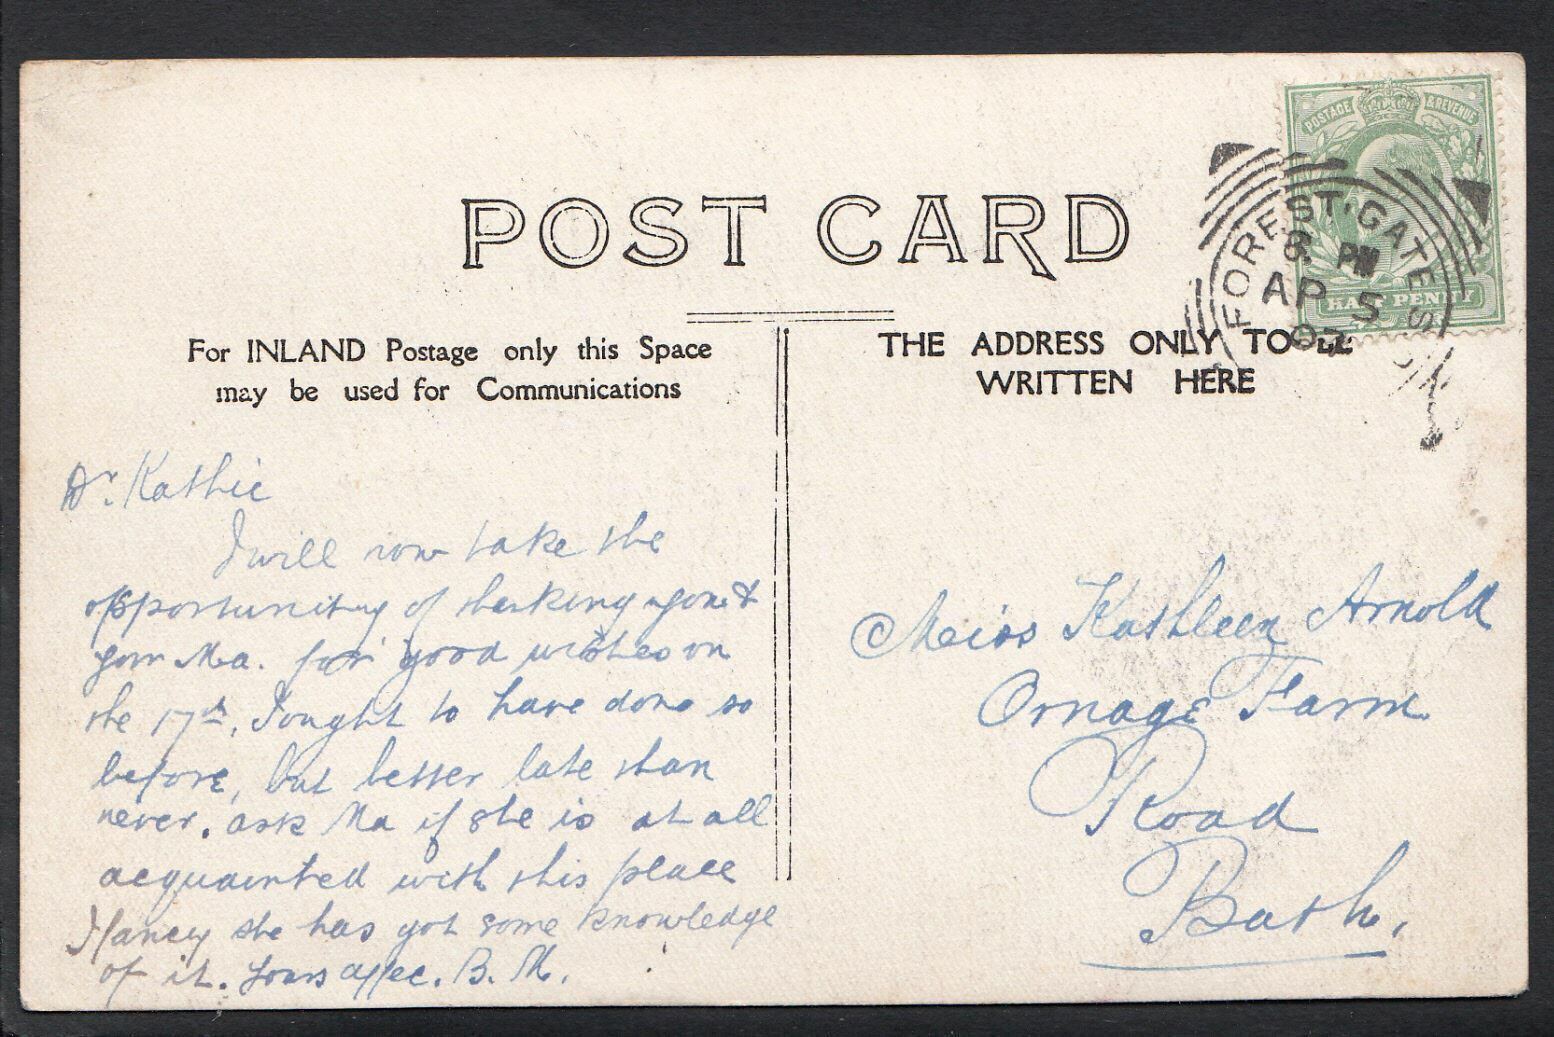 POST CARD
For INLAND Postage only this Space
may be used for Communications
THE ADDRESS ONLY TO BE
WRITTEN HERE
POSTAGE & REVENUE
HALF PENNY
FOREST GATE S.O.
8 PM
AP 5
07
Dr. Kathie
I will now take the
opportunity of thanking you &
your Ma. for good wishes on
the 17th. I ought to have done so
before, but better late than
never. ask Ma if she is at all
acquainted with this place
I fancy she has got some knowledge
of it. Yours affec. B. M.
Miss Kathleen Arnold
Ornage Farm
Road
Bath.